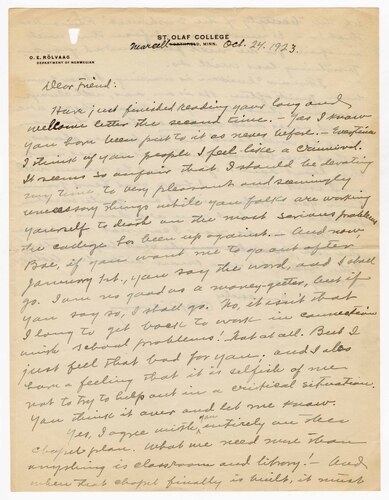 ST. OLAF COLLEGE
Marcell NORTHFIELD, MINN. Oct. 24, 1923.
O. E. RÖLVAAG
DEPARTMENT OF NORWEGIAN
Dear Friend:
Have just finished reading your long and
welcome letter the second time. – Yes I know
you have been put to it as never before. – Everytime
I think of you people I feel like a criminal.
It seems so unfair that I should be devoting
my time to very pleasant and seemingly
unnecessary things while you folks are working
yourself to death on the most serious problems
the college has been up against. – And now
Boe, if you want me to go out after
January 1st., you say the word, and I shall
go. I am no good as a money-getter, but if
you say so, I shall go. No, it isn't that
I long to get back to work in connection
with school problems! Not at all. But I
just feel that bad for you; and I also
have a feeling that it is selfish of me
not to try to help out in a critical situation.
You think it over and let me know.
Yes, I agree with you entirely on the
chapel plan. What we need more than
anything is classroom and library! – And
when that chapel finally is built, it must